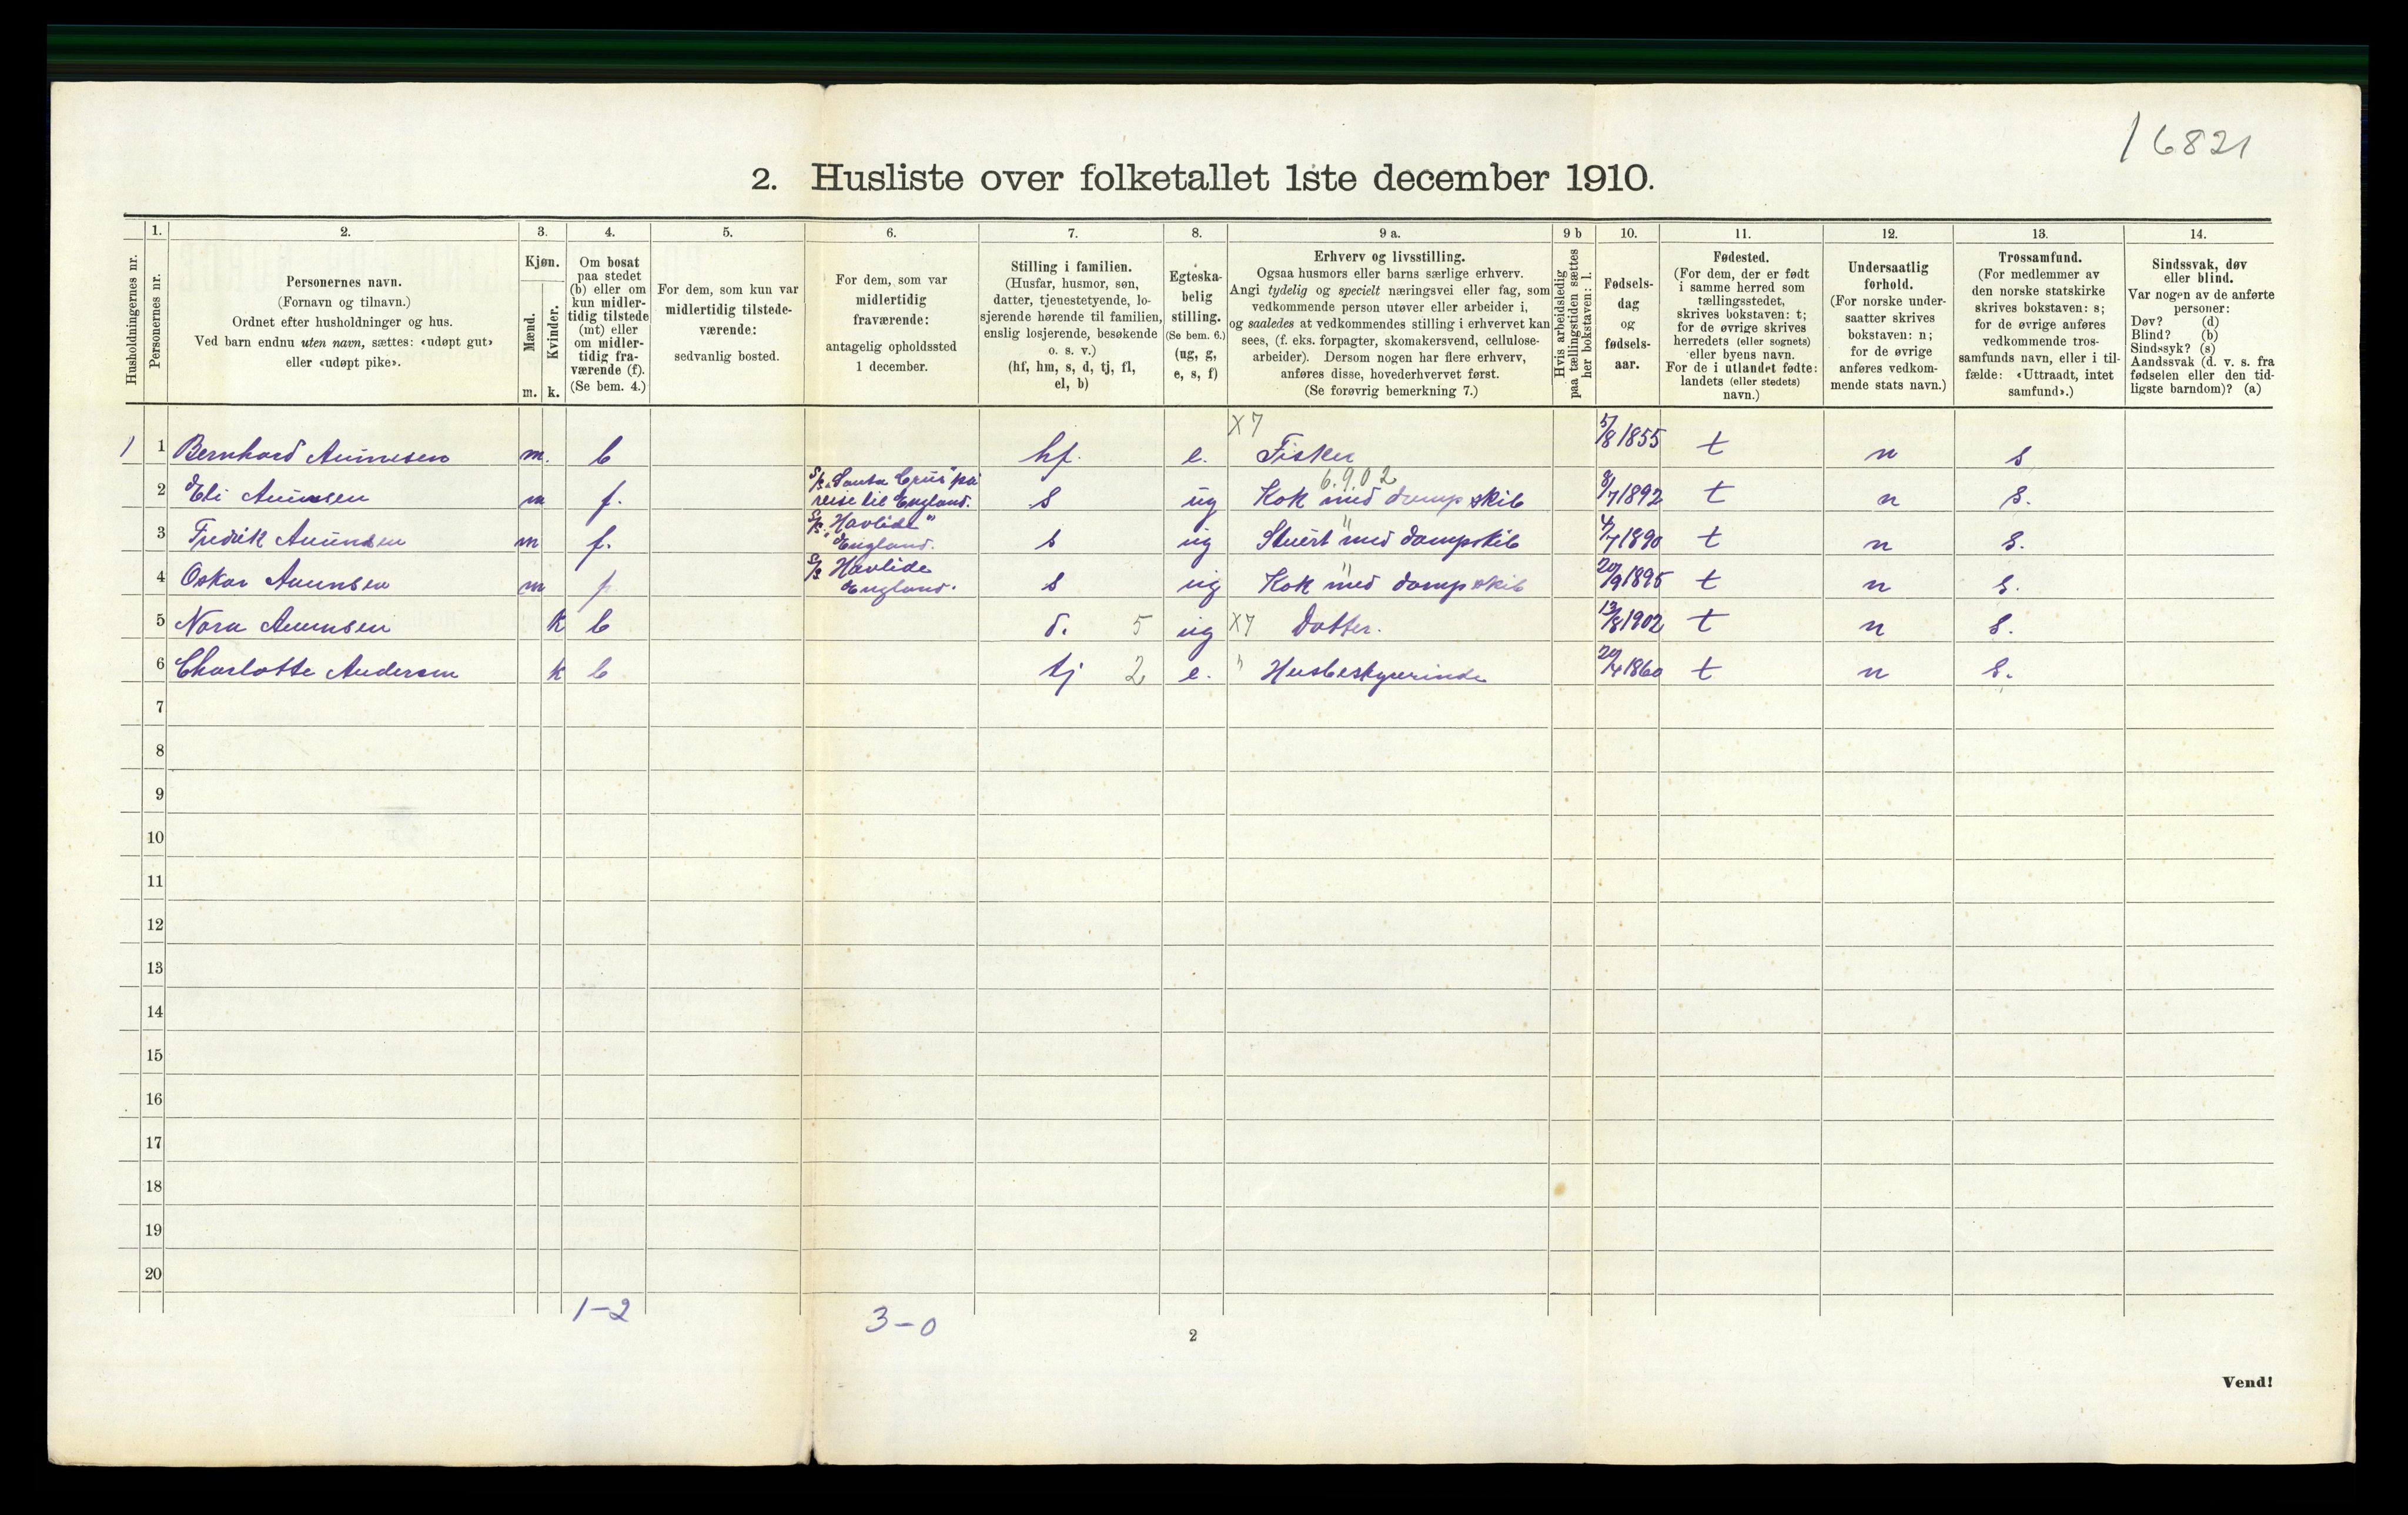 16821
2. Husliste over folketallet 1ste december 1910.
Husholdningernes nr.
1.
Personernes nr.
2.
Personernes navn.
(Fornavn og tilnavn.)
Ordnet efter husholdninger og hus.
Ved barn endnu uten navn, sættes: «udøpt gut»
eller «udøpt pike».
3.
Kjøn.
Mænd.
m.
Kvinder.
k.
4.
Om bosat
paa stedet
(b) eller om
kun midler-
tidig tilstede
(mt) eller
om midler-
tidig fra-
værende (f).
(Se bem. 4.)
5.
For dem, som kun var
midlertidig tilstede-
værende:
sedvanlig bosted.
6.
For dem, som var
midlertidig
fraværende:
antagelig opholdssted
1 december.
7.
Stilling i familien.
(Husfar, husmor, søn,
datter, tjenestetyende, lo-
sjerende hørende til familien,
enslig losjerende, besøkende
o. s. v.)
(hf, hm, s, d, tj, fl,
el, b)
8.
Egteska-
belig
stilling.
(Se bem. 6.)
(ug, g,
e, s, f)
9 a.
Erhverv og livsstilling.
Ogsaa husmors eller barns særlige erhverv.
Angi tydelig og specielt næringsvei eller fag, som
vedkommende person utøver eller arbeider i,
og saaledes at vedkommendes stilling i erhvervet kan
sees, (f. eks. forpagter, skomakersvend, cellulose-
arbeider). Dersom nogen har flere erhverv,
anføres disse, hovederhvervet først.
(Se forøvrig bemerkning 7.)
9 b
Hvis arbeidsledig
paa tællingstiden sættes
her bokstaven: l.
10.
Fødsels-
dag
og
fødsels-
aar.
11.
Fødested.
(For dem, der er født
i samme herred som
tællingsstedet,
skrives bokstaven: t;
for de øvrige skrives
herredets (eller sognets)
eller byens navn.
For de i utlandet fødte:
landets (eller stedets)
navn.)
12.
Undersaatlig
forhold.
(For norske under-
saatter skrives
bokstaven: n;
for de øvrige
anføres vedkom-
mende stats navn.)
13.
Trossamfund.
(For medlemmer av
den norske statskirke
skrives bokstaven: s;
for de øvrige anføres
vedkommende tros-
samfunds navn, eller i til-
fælde: «Uttraadt, intet
samfund».)
14.
Sindssvak, døv
eller blind.
Var nogen av de anførte
personer:
Døv? (d)
Blind? (b)
Sindssyk? (s)
Aandssvak (d. v. s. fra
fødselen eller den tid-
ligste barndom)? (a)
X7
1 1 Bernhard m. b hf. e. Fisker 5/8 1855 t n s
S/S "Santa Crus" på 6.9.02
2 Eli f. reise til England. s ug Kok med dampskib 8/7 1892 t n s.
S/S. "Havlide" "
3 Fredrik m f. England. s ug Stuert med dampskib 4/7 1890 t n s.
S/S Havlide "
4 Oskar m f England. s ug Kok med dampskib 20/9 1895 t n s.
5 Nora k b d. 5 ug X7 Datter. 13/8 1902 t n s.
6 Charlotte Andersen k b tj 2 e. " Husbestyrerinde 20/4 1860 t n s.
7
8
9
10
11
12
13
14
15
16
17
18
19
20
1-2
3-0
2
Vend!